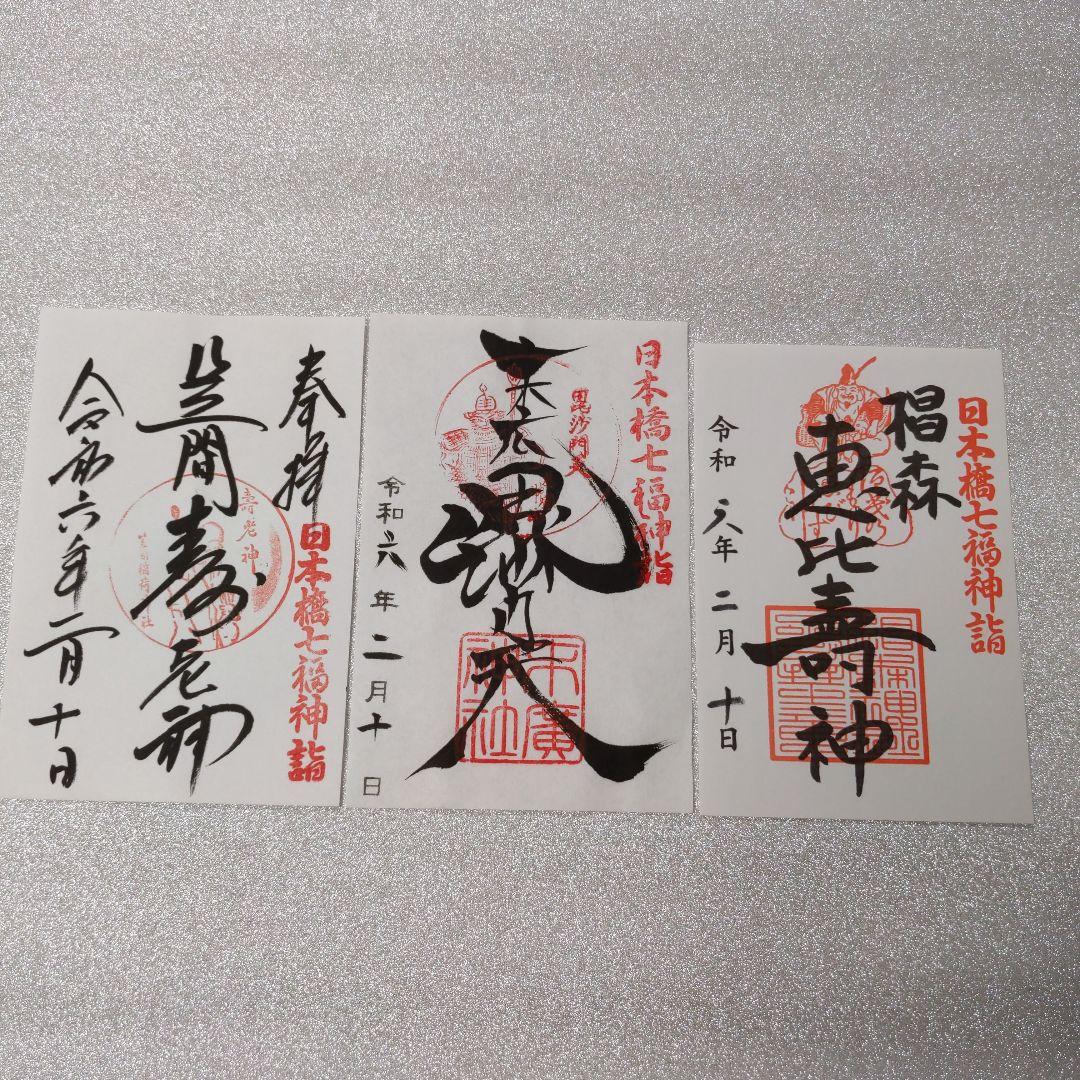 奉拝
日本橋七福神詣
笠間寿老神
壽老神
令和六年二月十日
日本橋七福神詣
毘沙門天
末廣神社
令和六年二月十日
日本橋七福神詣
椙森
恵比壽神
令和六年二月十日